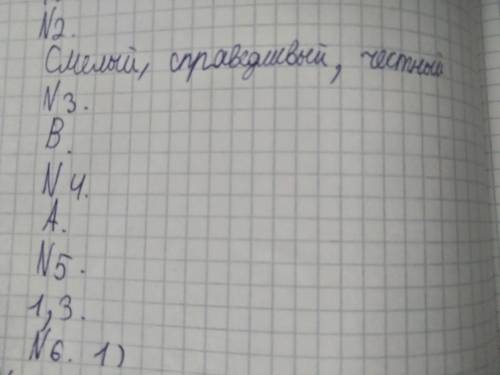 N2.
Смелый, справедливый, честный
N3.
В.
N4.
А.
N5.
1,3.
N6. 1)